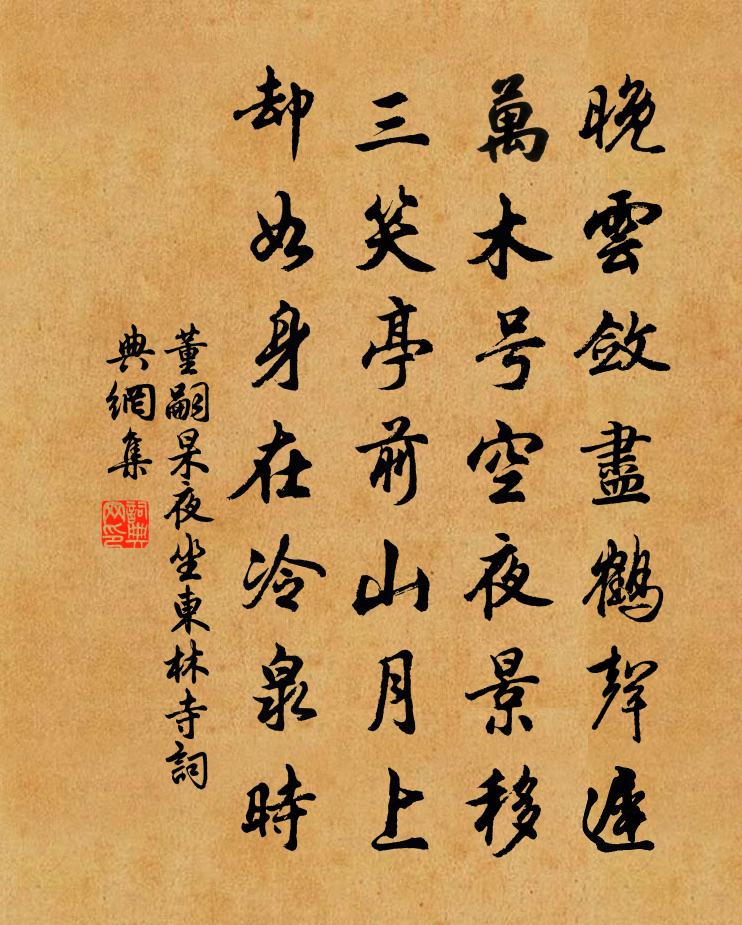 晚雲斂盡鶴聲遲
萬木号空夜景移
三笑亭前山月上
却如身在冷泉時
董嗣杲夜坐東林寺詞
典網集
詞典
网印